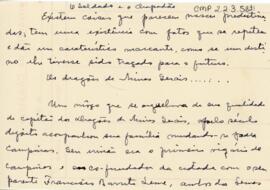 O Soldado e o Chapadão
CMP 2.2.3.58
Existem coisas que parecem nascer predestina-
das, tem uma existência com fatos que se repetem
e dão um característico marcante, como se um desti-
no lhe tivesse sido traçado para o futuro.
Os dragões de Minas Gerais.......
Um moço que se orgulhava de sua qualidade
de capitão dos dragões de Minas Gerais, pelo século
dezoito acompanhou sua família mudando-se para
Campinas. Seu irmão era o primeiro vigário de
Campinas, e co-fundador da cidade com o seu
parente Francisco Barreto Leme, ambos